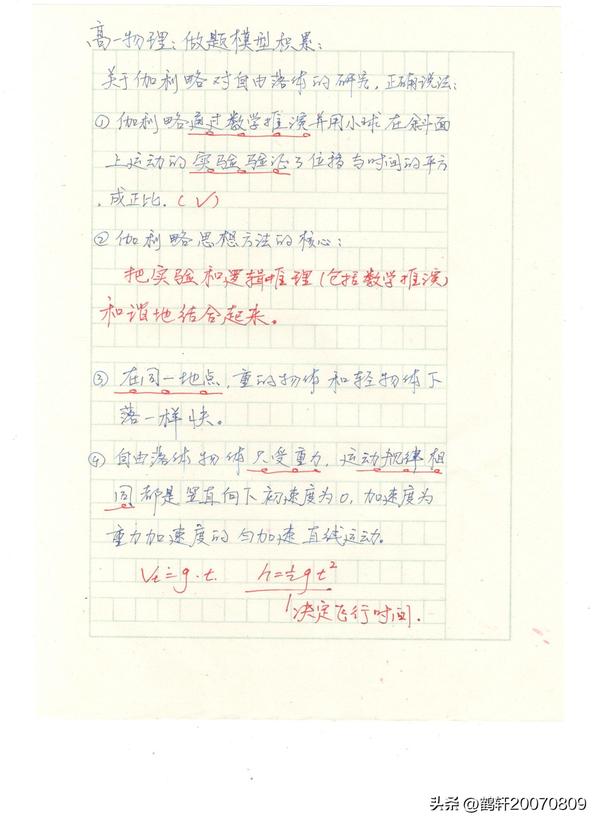 高一物理:做题模型积累:
关于伽利略对自由落体的研究,正确说法:
① 伽利略通过数学推演并用小球在斜面
上运动的实验验证了位移与时间的平方
成正比.(√)
② 伽利略思想方法的核心:
把实验和逻辑推理(包括数学推演)
和谐地结合起来。
③ 在同一地点,重的物体和轻物体下
落一样快。
④ 自由落体物体只受重力,运动规律相
同都是竖直向下初速度为0,加速度为
重力加速度的匀加速直线运动。
Vt=g·t. h=½gt²
决定飞行时间.
头条 @鹤轩20070809